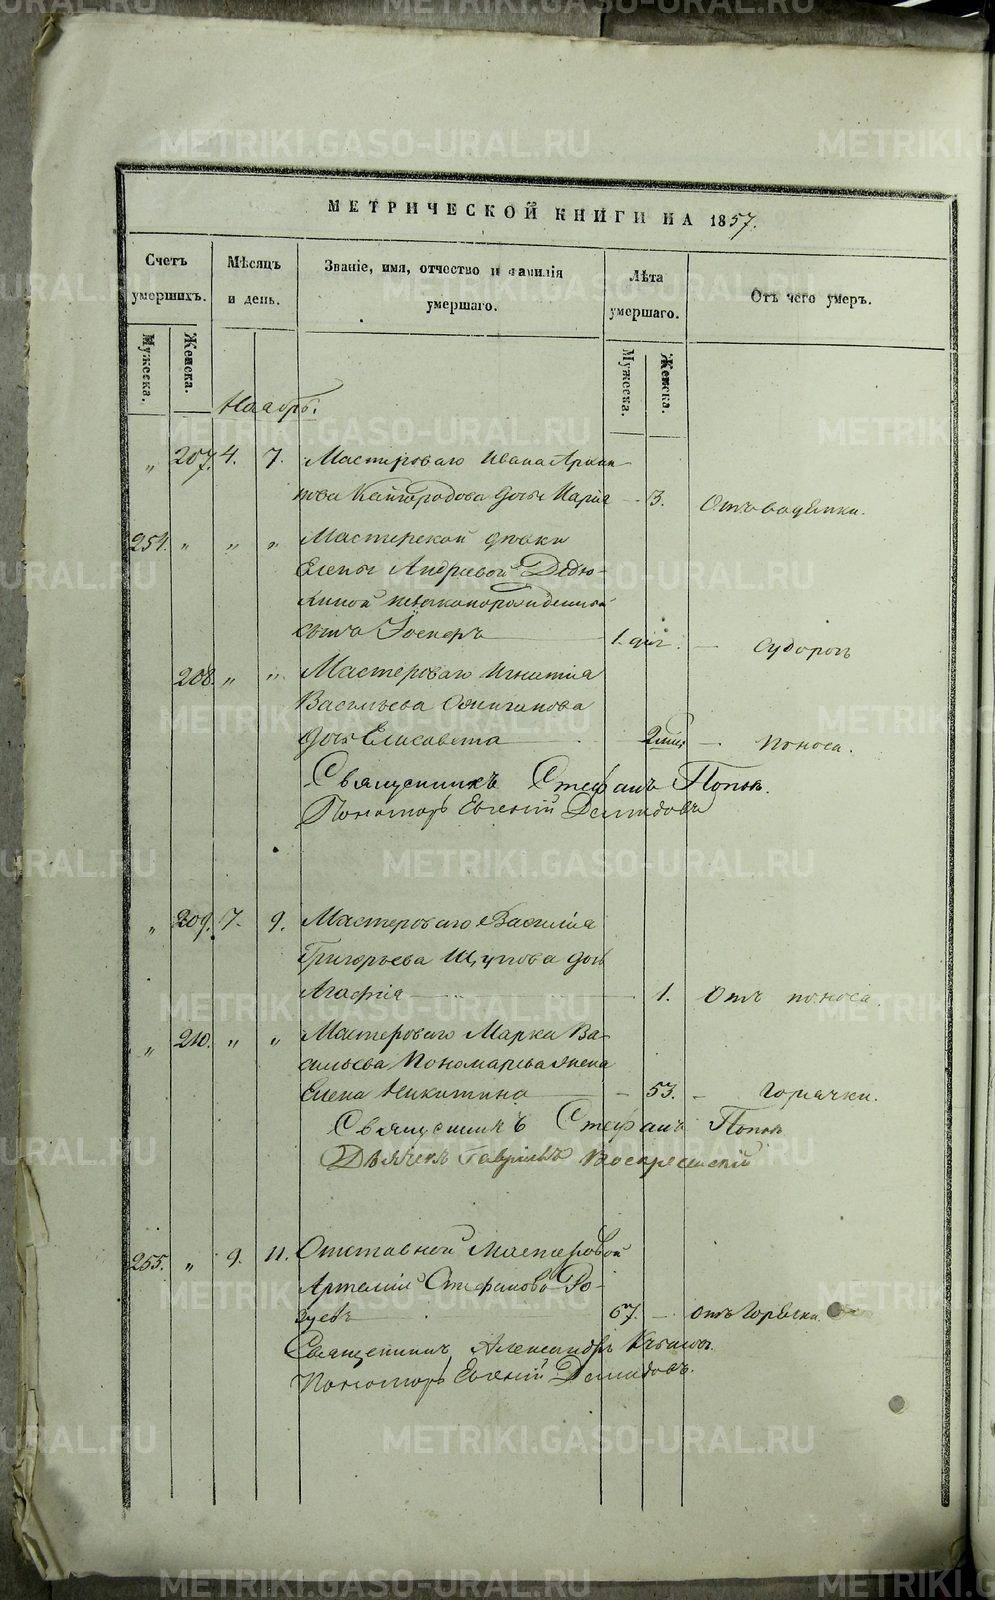 МЕТРИЧЕСКОЙ КНИГИ НА 1857.
Счетъ умершихъ.
Мѣсяцъ и день.
Званіе, имя, отчество и фамилія умершаго.
Лѣта умершаго.
Отъ чего умеръ.
Мужеска.
Женска.
Мужеска.
Женска.
Ноябрь.
„ 207. 4. 7. Мастероваго Ивана
Кайгородова дочь Марія 3. Отъ водянки.
254. „ „ „ Мастерской дѣвки
Елены Андреевой Дедю-
хиной незаконорожденной
сынъ Іосифъ 1. дня. — Судорогъ
208. „ „ Мастероваго Игнатія
Васильева Ожиганова
дочь Елисавета — поноса.
Священникъ Стефанъ Поповъ.
Пономарь Евгеній Демидовъ
„ 209. 7. 9. Мастероваго Василія
Григорьева Щупова дочь
Агафія 1. Отъ поноса.
„ 210. „ „ Мастероваго Марка Ва-
сильева Пономарева жена
Елена Никитина — 53. — горячки.
Священникъ Стефанъ Поповъ
Дьячекъ Гавріилъ Воскресенскій
255. „ 9. 11. Отставной Мастеровой
Артемій Стефановъ
67. — отъ Горячки.
Священникъ Александръ
Пономарь Евгеній Демидовъ.
METRIKI.GASO-URAL.RU